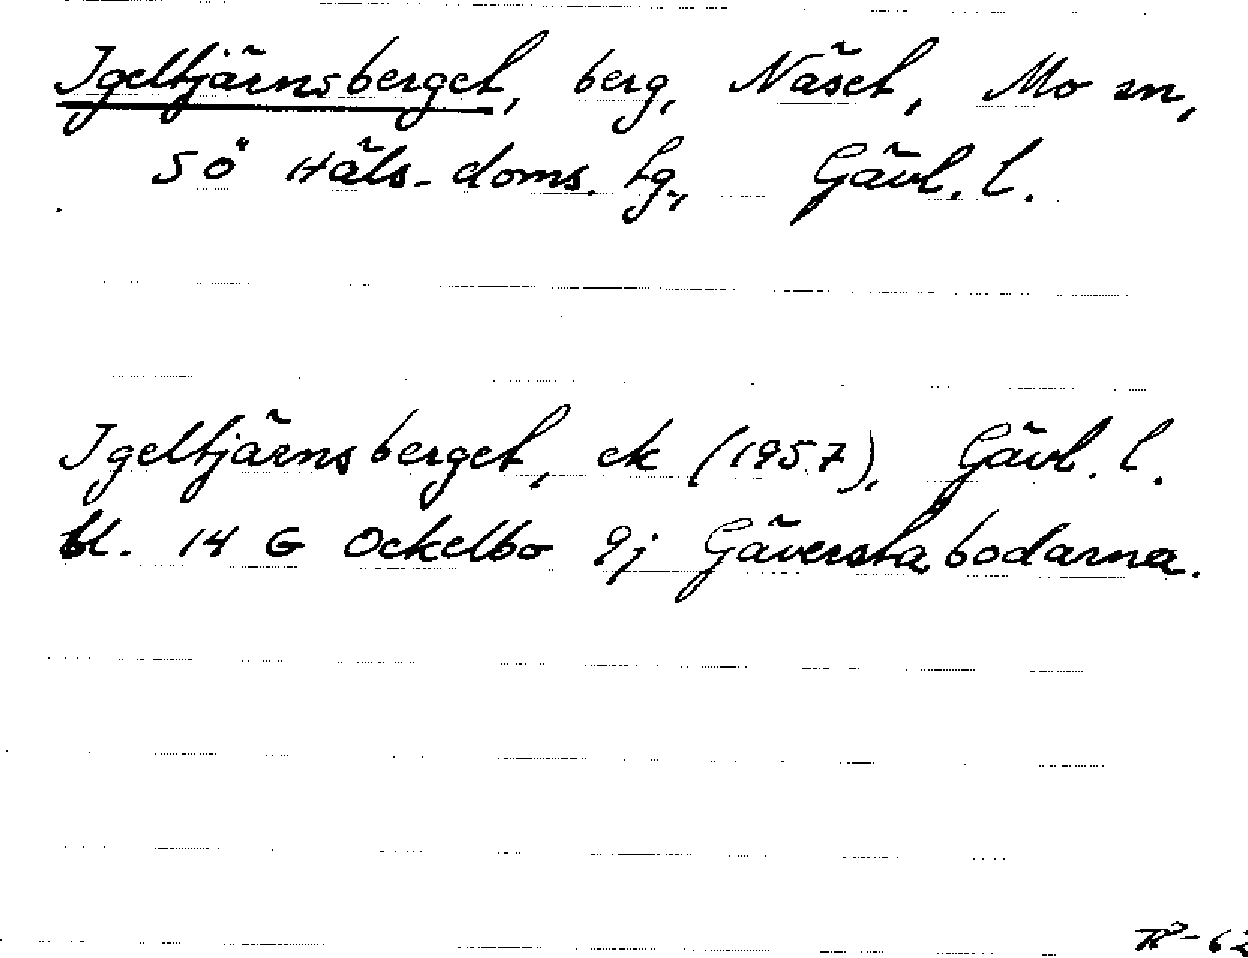 Igeltjärnsberget, berg, Näset, Mo sn,
Sö Häls. doms. lg, Gävl. l.
Igeltjärnsberget, ek (1957), Gävl. l.
bl. 14 G Ockelbo 9j Gäverstabodarna.